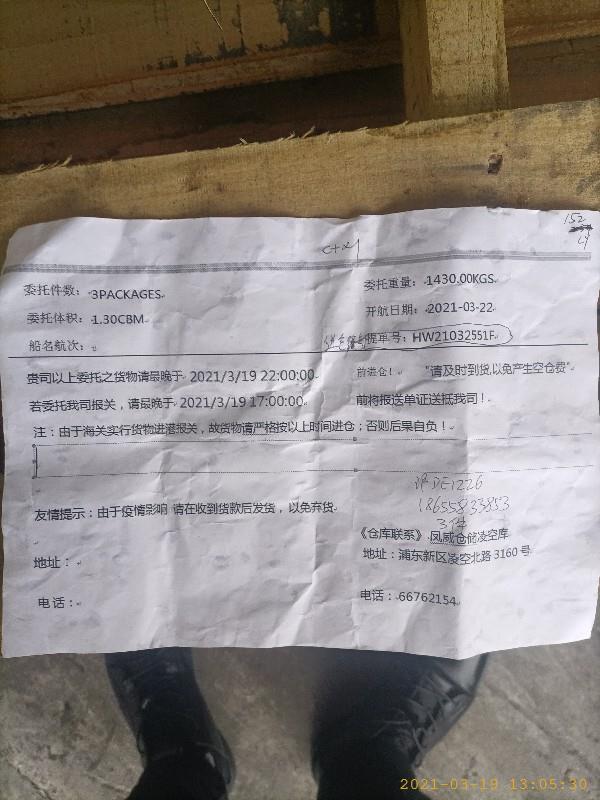 152
委托件数：3PACKAGES
委托重量：1430.00KGS
委托体积：1.30CBM
开航日期：2021-03-22
船名航次：
提单号：HW21032551F
贵司以上委托之货物请最晚于 2021/3/19 22:00:00 前进仓！ "请及时到货,以免产生空仓费"
若委托我司报关，请最晚于 2021/3/19 17:00:00 前将报送单证送抵我司！
注：由于海关实行货物进港报关，故货物请严格按以上时间进仓；否则后果自负！
DE1226
18655833853
友情提示：由于疫情影响 请在收到货款后发货，以免弃货
《仓库联系》 凤威仓储凌空库
地址：
地址：浦东新区凌空北路 3160 号
电话：
电话：66762154
2021-03-19 13:05:30